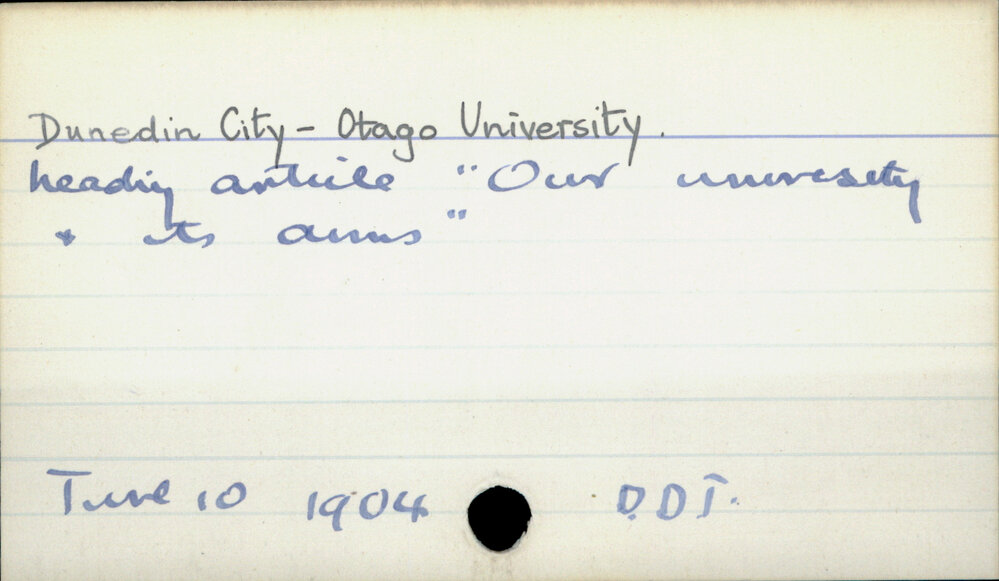 Dunedin City - Otago University.
heading article "Our university
& its aims"
June 10 1904 O.D.T.